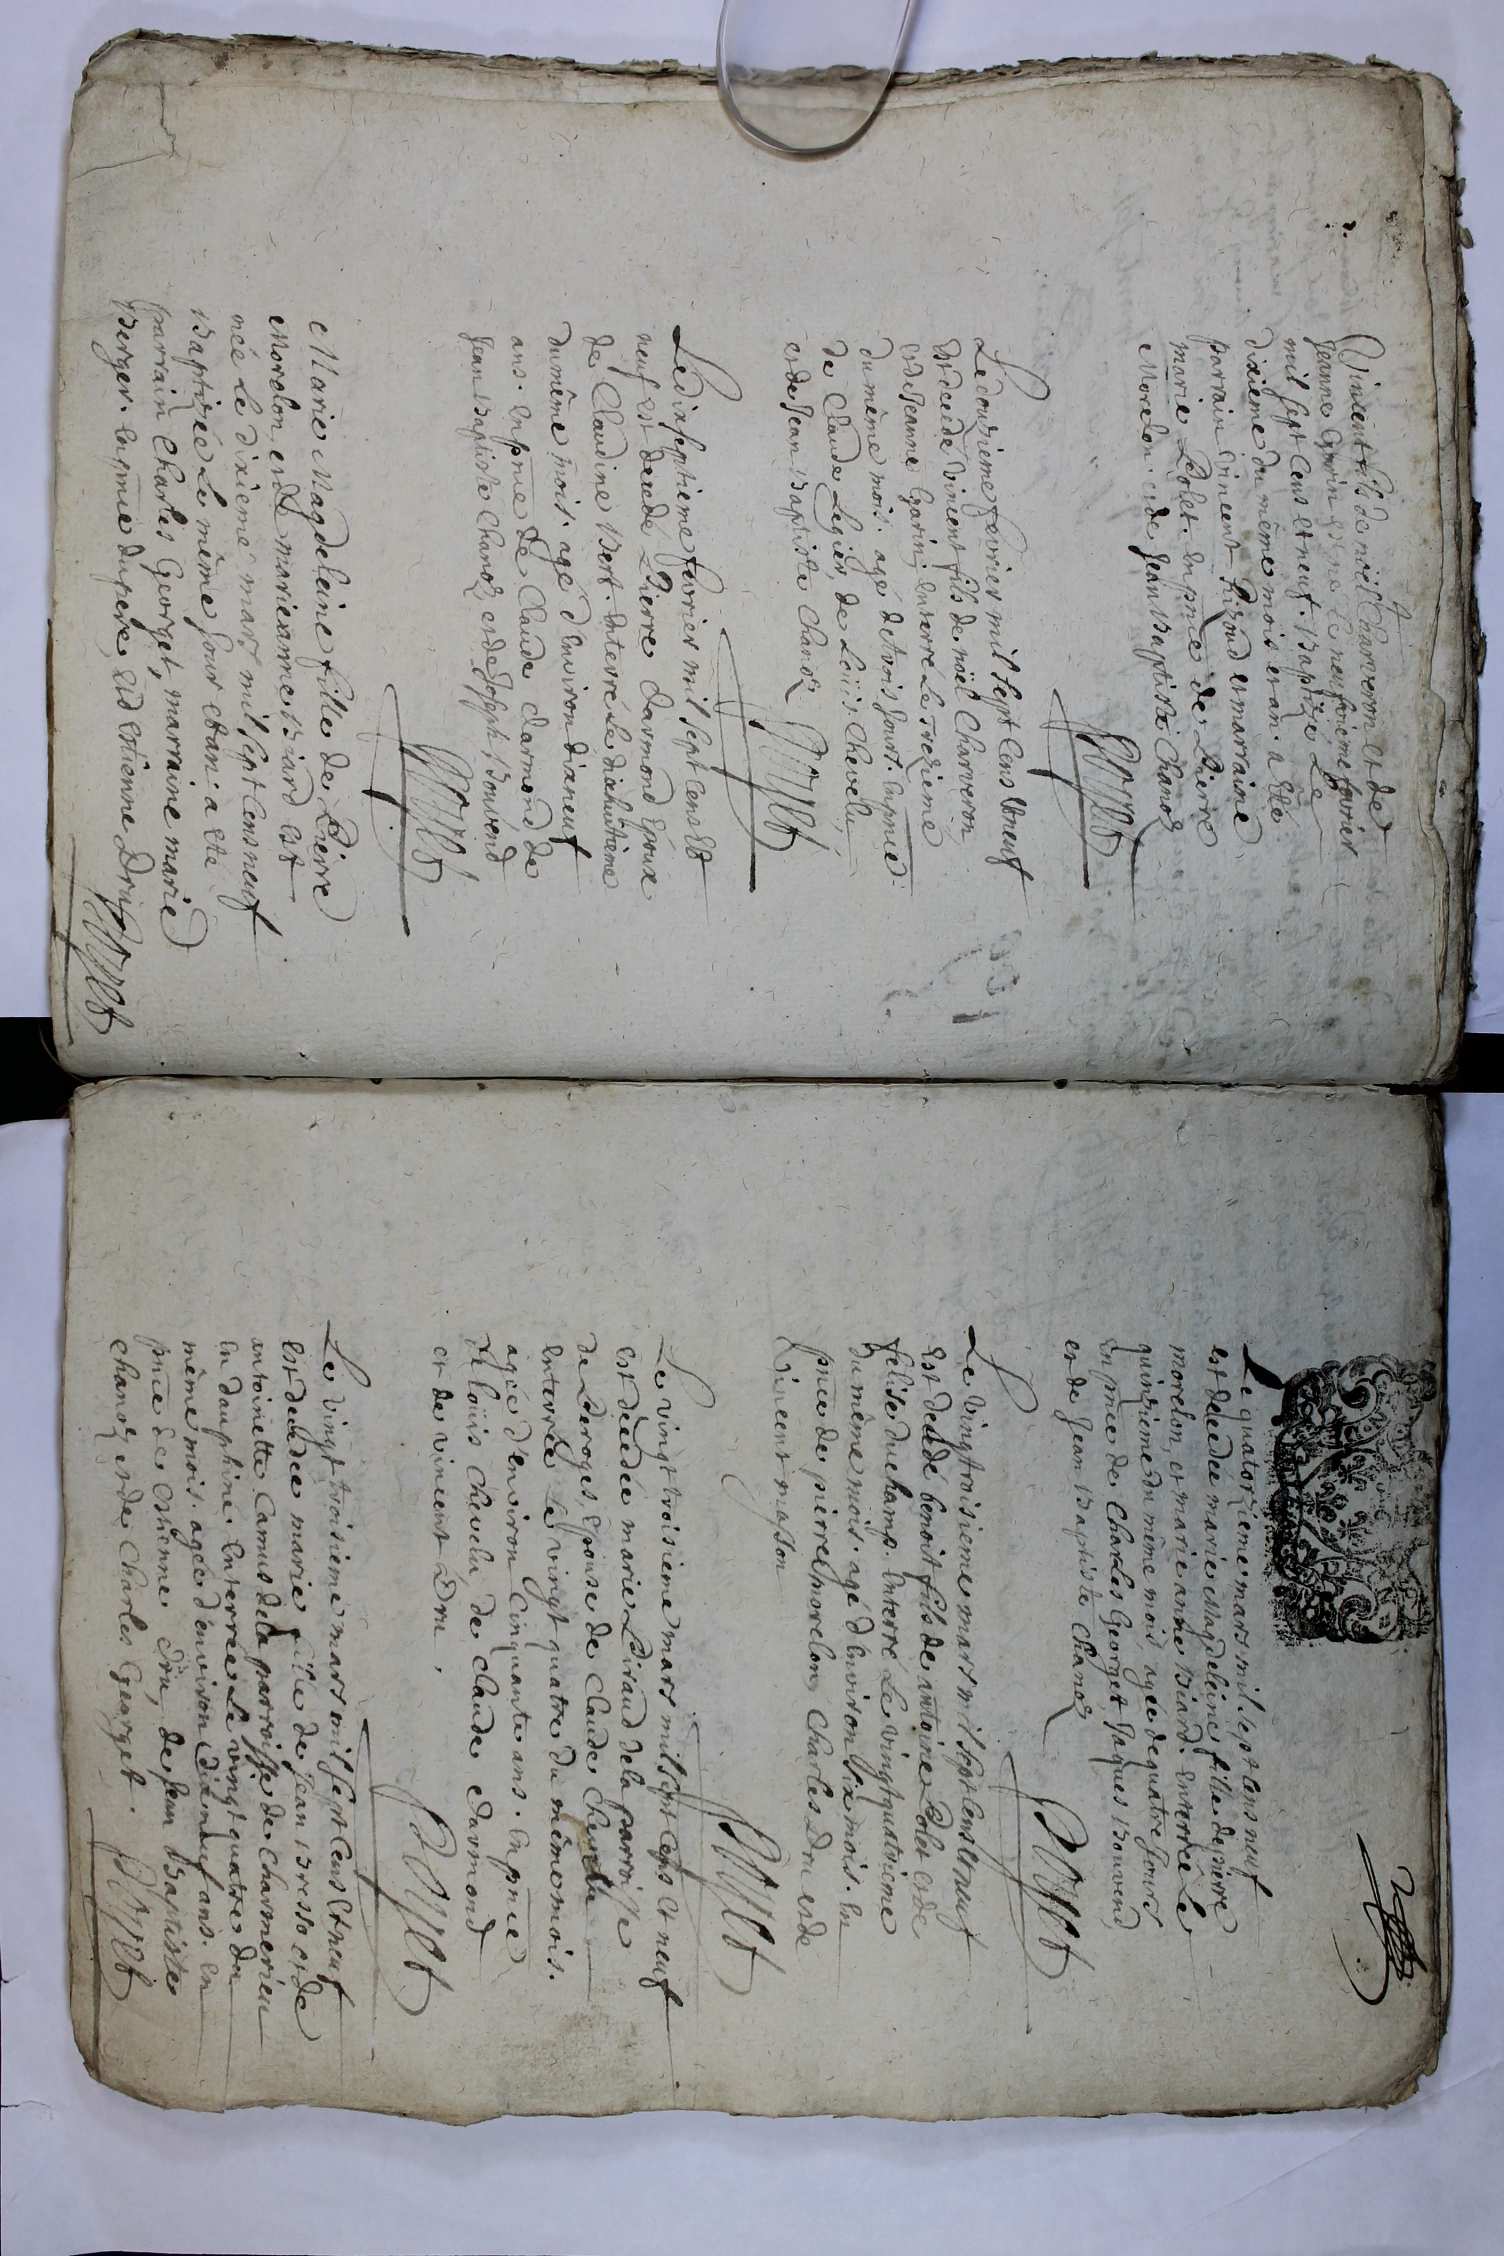 Vincent fils de noël Charveron et de
Jeanne Garin est né le neufvieme fevrier
mil sept cens et neuf. Baptizé Le
dixieme du même mois et an. a été
parrain Vincent et marraine
marie Polet. En pnce de Pierre
Morelon. et de Jean Baptiste Chanoz
Le douzieme fevrier mil sept cens et neuf
est decedé vincent fils de noël Charveron
et de Jeanne Garin, enterré Le Trezieme
du même mois. agé de trois jours. En pnce
de Claude Legier, de Loüis Chevelu,
et de Jean Baptiste Chanoz
Le dix septieme fevrier mil sept cens et
neuf est decedé Pierre Darmond Epoux
de Claudine Vert. Enterré Le dixhuitieme
du même mois. agé d'Environ dixneuf
ans. En pnce de Claude Darmond de
Jean Baptiste Chanoz et de Joseph Bouvend
Marie Magdeleine fille de Pierre
Morelon, et de marie anne Biard est
née Le dixieme mars mil sept cens neuf
Baptizée Le même Jour et an. a été
parrain Charles Georget, marraine marie
Berger. En pnce du pere, et d'Etienne Dru
Le quatorzieme mars mil sept cens neuf
est decedée marie Magdeleine fille de pierre
morelon, et marie anne Biard. enterrée Le
quinzieme du même mois, agée de quatre Jours
En pnce de Charles Georget, Jaques Bouvend
et de Jean Baptiste Chanoz
Le vingtroisieme mars mil sept cens et neuf
est decedé benoit fils de antoine Polet et de
felise duchamp. Enterré Le vingtquatrieme
du même mois. agé d'Environ six mois. En
pnce de pierre morelon, Charles Dru et de
Vincent masson
Le vingt troisieme mars mil sept cens et neuf
est decedée marie Piraud de la parroisse
de Leroges, Epouse de Claude Chevelu
enterrée Le vingt quatre du même mois.
agée d'environ Cinquante ans. En pnce
de Loüis Chevelu, de Claude Darmond
et de vincent Dru.
Le vingt troisieme mars mil sept cens et neuf
est decedée marie fille de Jean Bresso et de
antoinette Camus de la parroisse de Charmerieu
en dauphiné. Enterrée Le vingt quatre du
même mois. agée d'environ dixneuf ans. En
pnce de Etienne Dru, de Jean Baptiste
Chanoz et de Charles Georget.